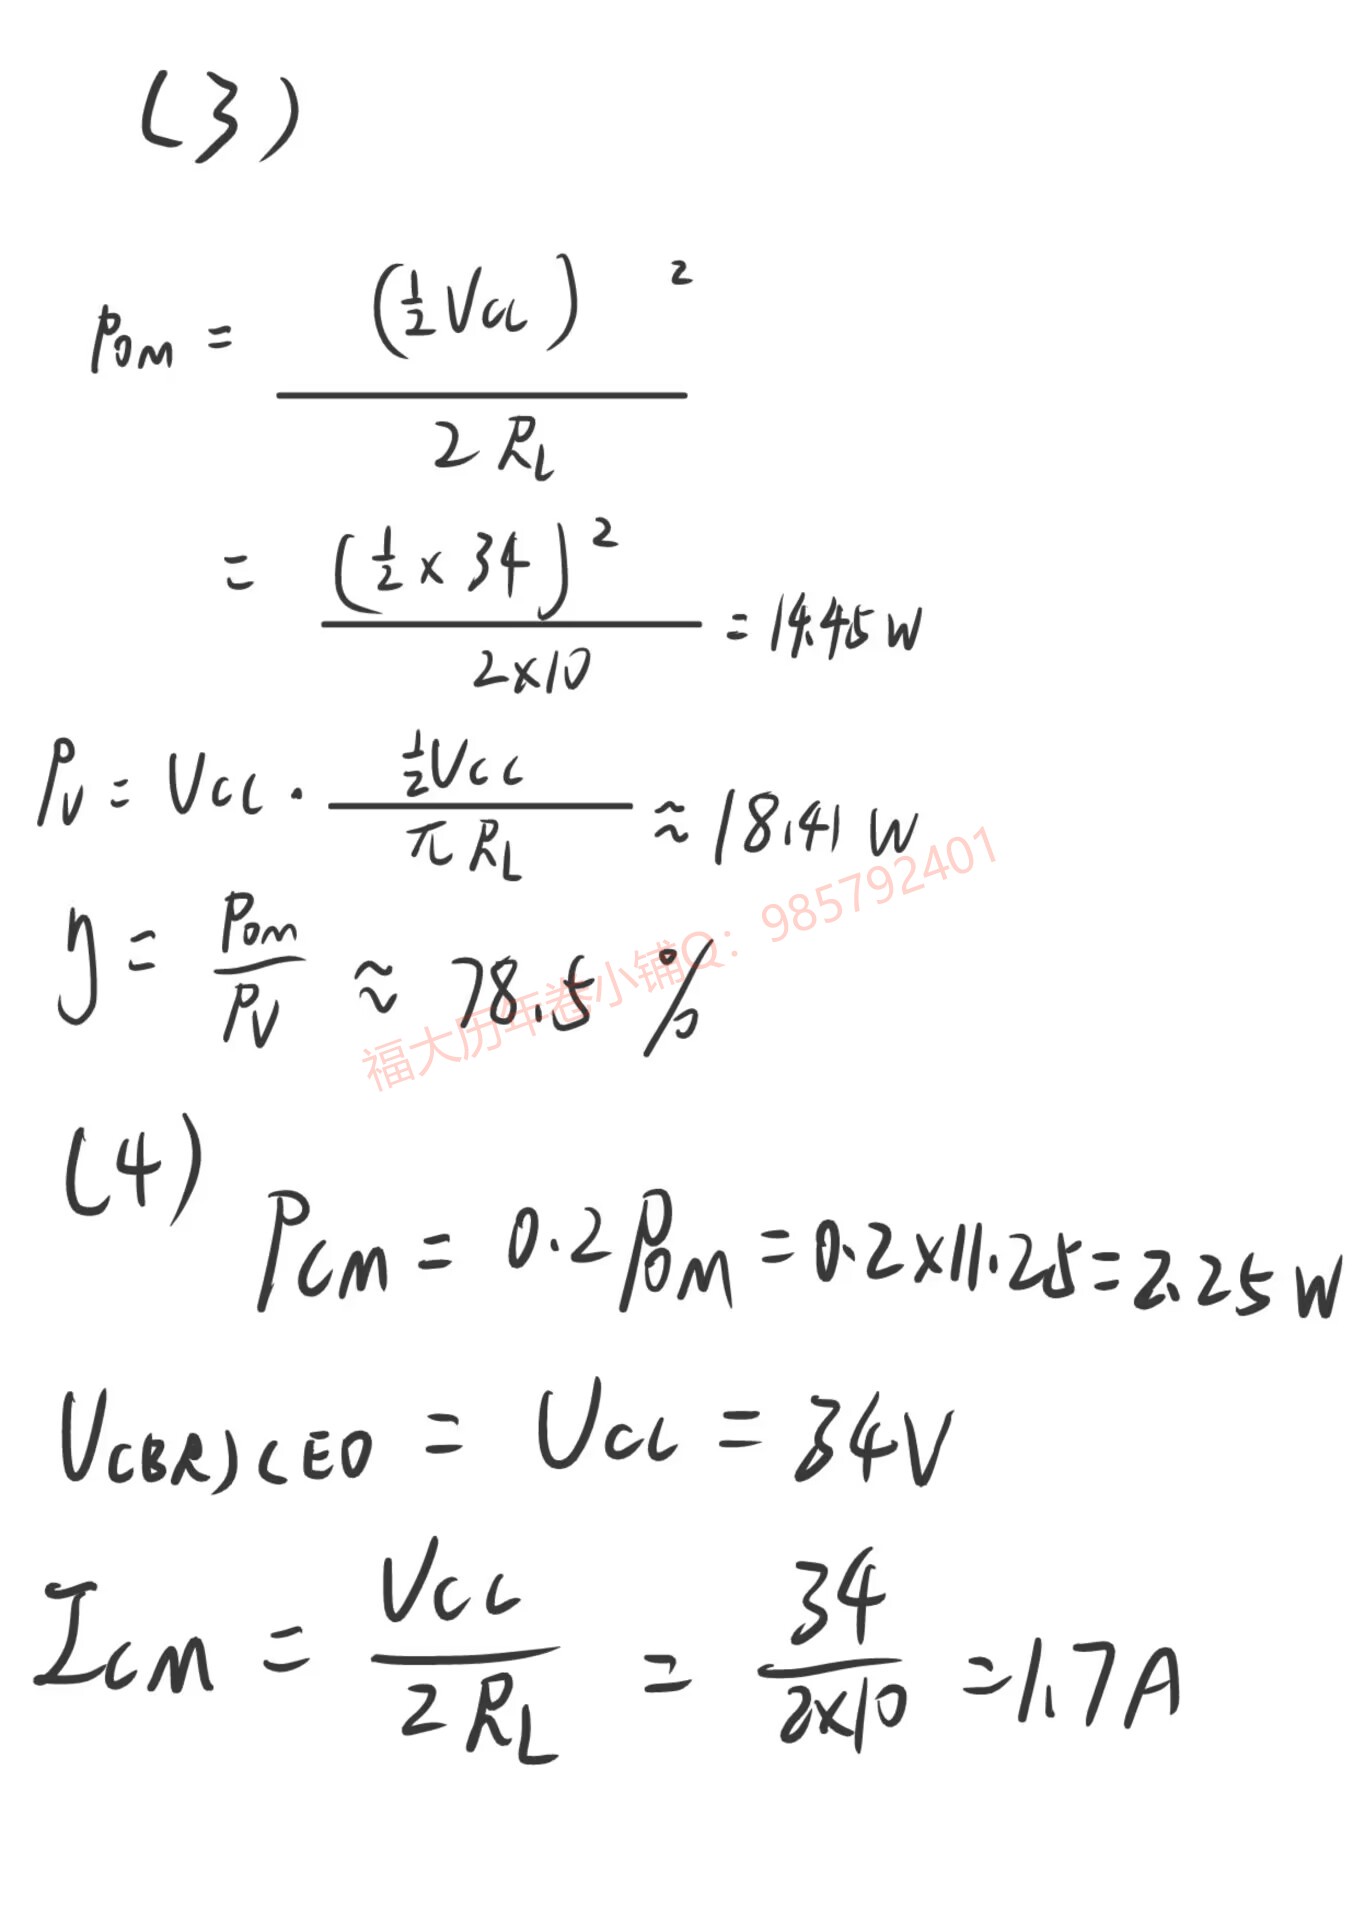 (3)
P_OM = (1/2 Vcc)^2 / 2R_L
= (1/2 × 34)^2 / 2×10 = 14.45W
P_V = Vcc · 1/2 Vcc / πR_L ≈ 18.41 W
η = P_OM / P_V ≈ 78.5%
福大历年卷小铺Q：985792401
(4)
P_CM = 0.2P_OM = 0.2×11.25 = 2.25W
U_(BR)CEO = Ucc = 34V
I_CM = Vcc / 2R_L = 34 / 2×10 = 1.7A